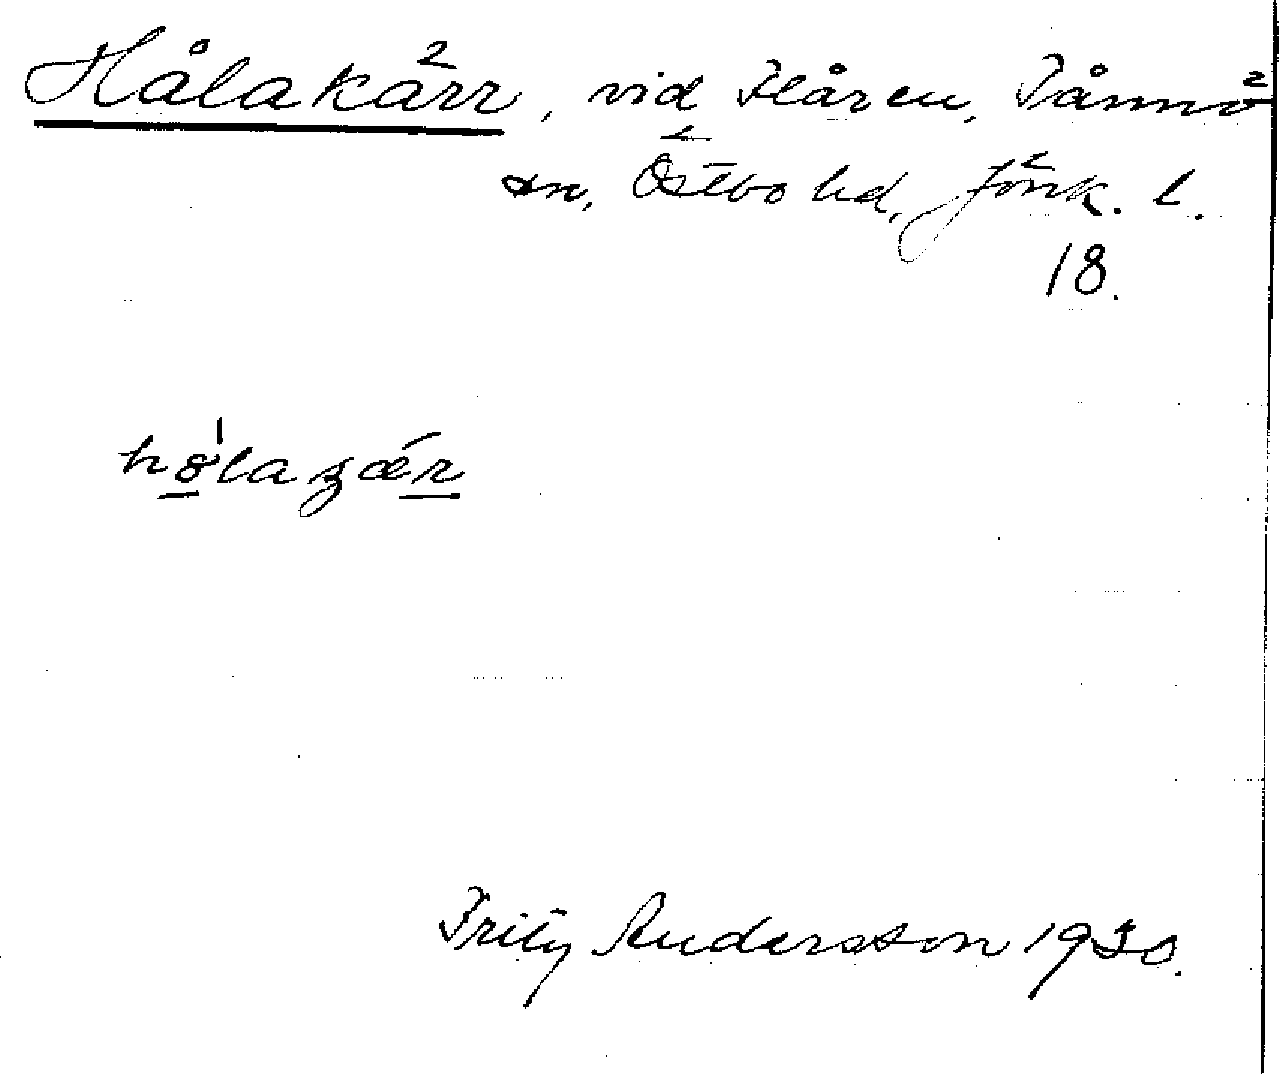 Hålakärr, vid Flåren, Tånnö
sn, Östbo hd, Jönk. l.
18.
hålaʒær
Fritz Andersson 1930.